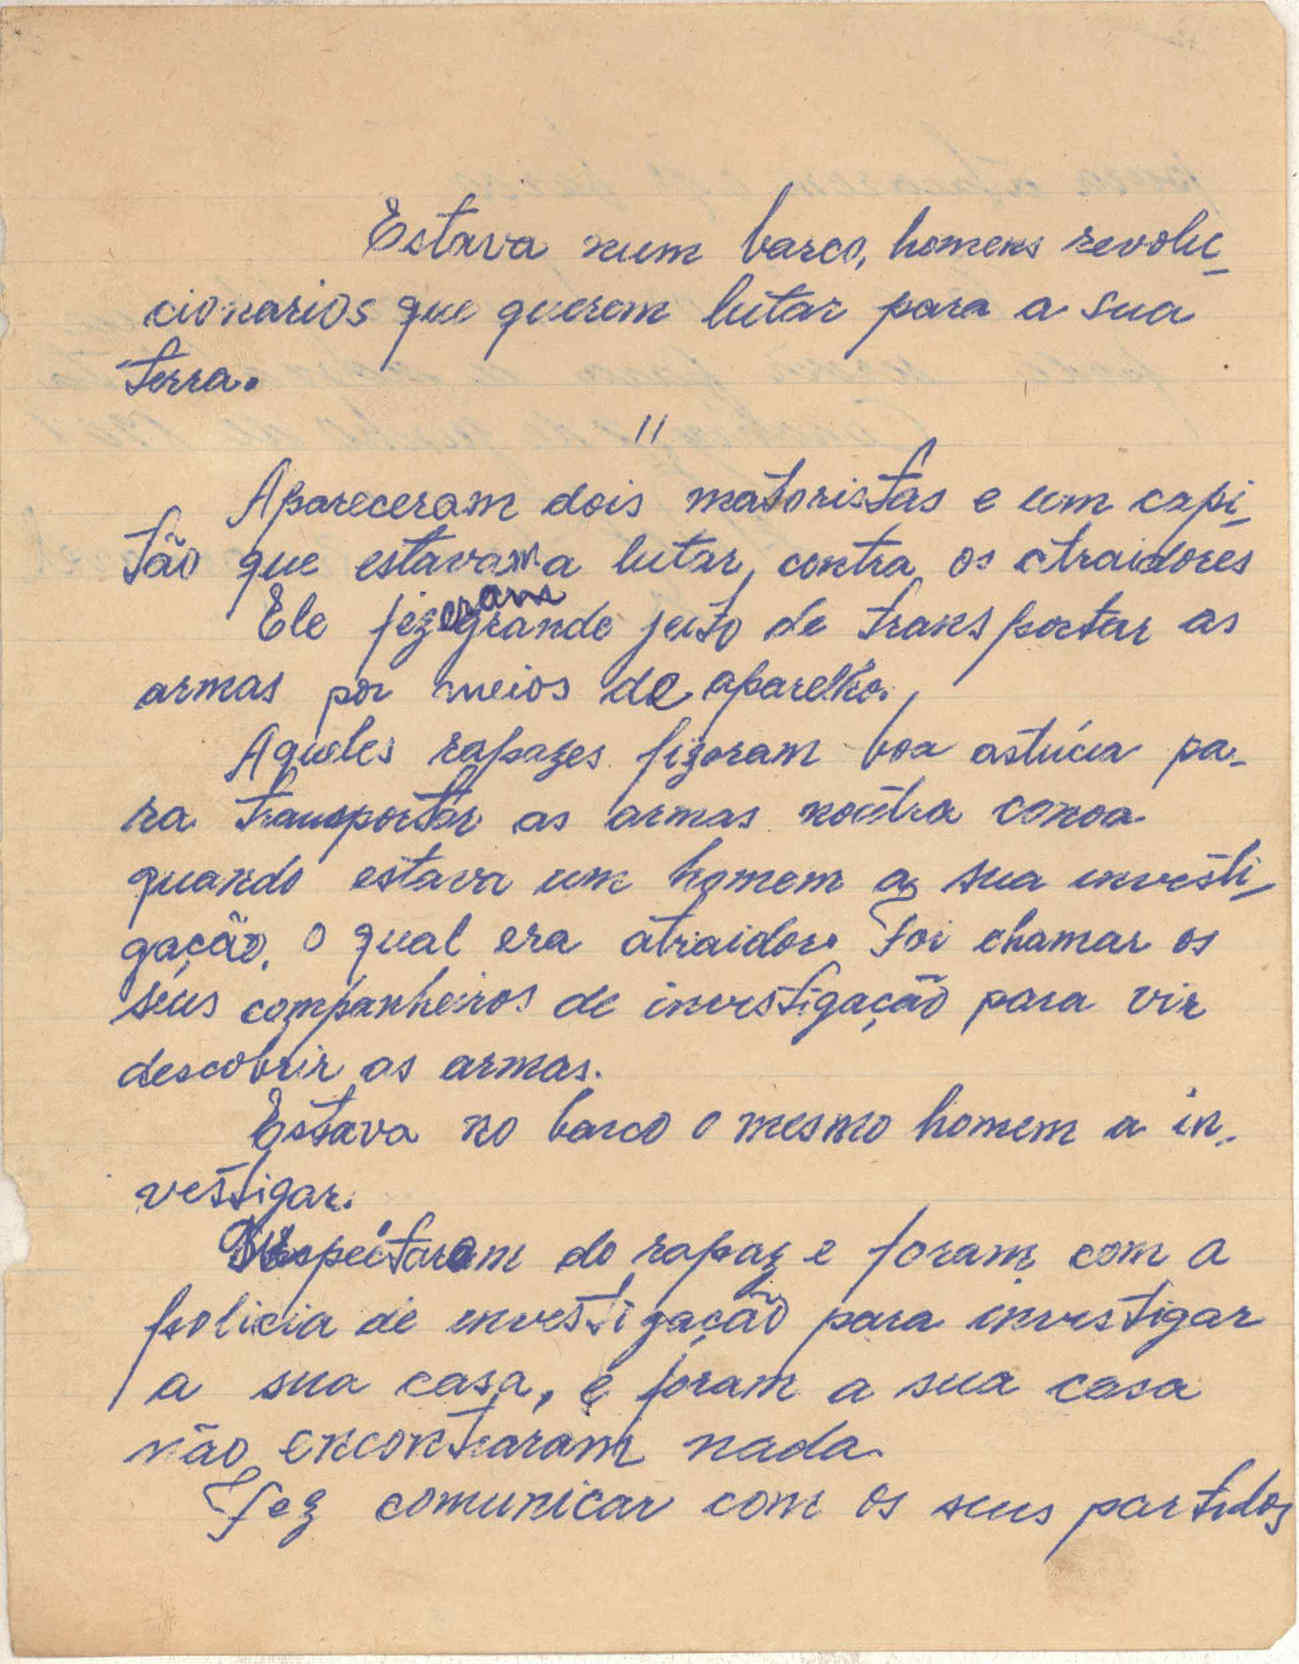 Estava num barco, homens revolu-
cionarios que querem lutar para a sua
terra.
"
Apareceram dois matoristas e um capi-
tão que estavam a lutar, contra os atraidores
Ele fizeram grande jeito de transportar as
armas por meios de aparelho.
Aqueles rapazes fizeram boa astúcia pa-
ra transportar as armas noutra canoa
quando estava um homem a sua investi-
gação, o qual era atraidor. Foi chamar os
seus companheiros de investigação para vir
descobrir as armas.
Estava no barco o mesmo homem a in-
vestigar.
Suspeitaram do rapaz e foram com a
policia de envestigação para investigar
a sua casa, e foram a sua casa
não encontraram nada.
Fez comunicar com os seus partidos